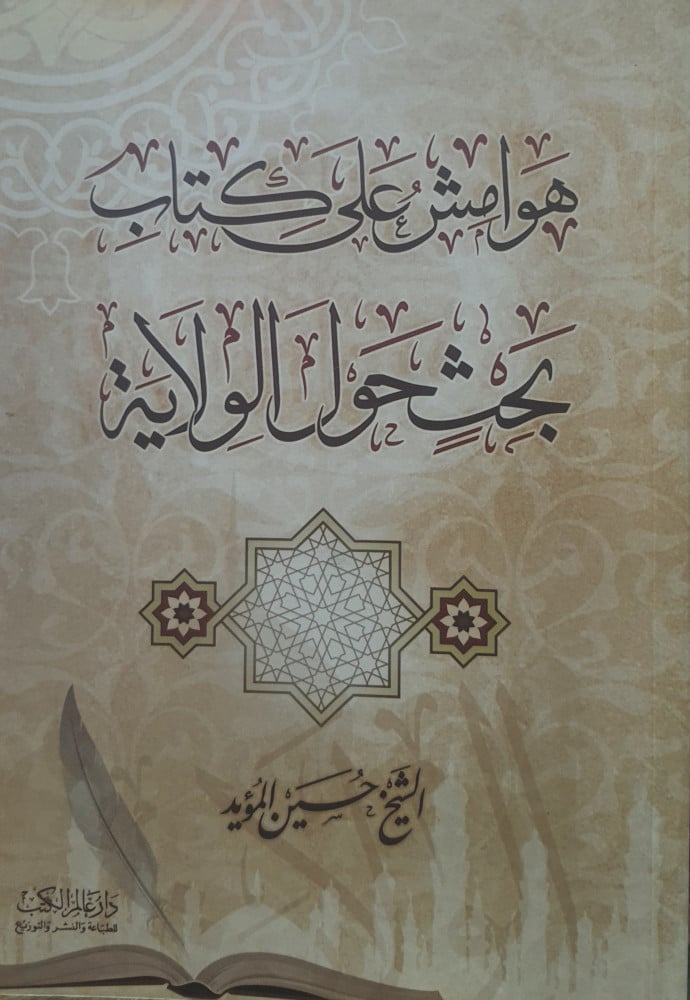 هَوَامِش عَلَى كِتَابِ
بَحْثٍ حَوْلَ الوِلَايَة
الشيخ حسين المؤيد
دار عالم الكتب
للطباعة والنشر والتوزيع